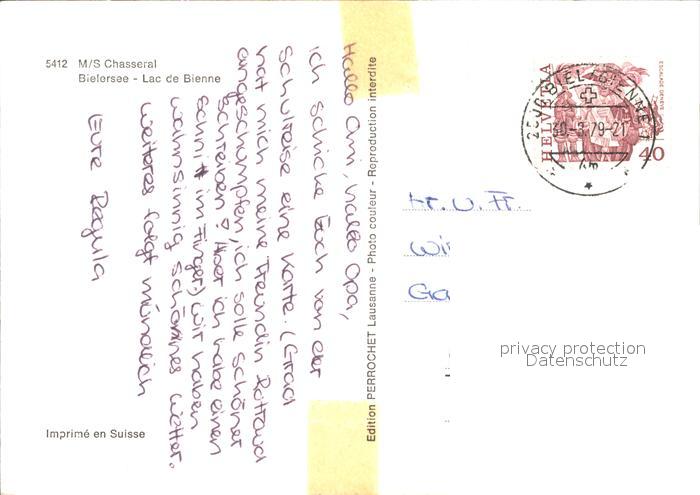 5412 M/S Chasseral
Bielersee - Lac de Bienne
Hallo Omi, hallo Opa,
ich schicke Euch von der
Schulreise eine Karte. (Grad
hat mich meine Freundin Rotraud
angeschumpfen, ich solle schöner
schreiben! Aber ich habe einen
Schnitt im Finger) Wir haben
wahnsinnig schönes Wetter.
Weiteres folgt mündlich
Eure Regula
Imprimé en Suisse
Edition PERROCHET Lausanne - Photo couleur - Reproduction interdite
HELVETIA
ESCALADE GENÈVE
40
2500 BIEL-BIENNE
30.-8.79-21
Hr. u. Fr.
Wi
Ga
privacy protection
Datenschutz